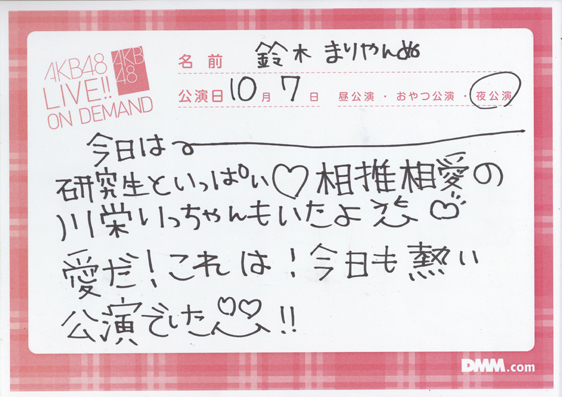 AKB48
LIVE!!
ON DEMAND
AKB
48
名前 鈴木まりやんぬ
公演日 10月 7日 昼公演・おやつ公演・夜公演
今日は
研究生といっぱい♡相推相愛の
川栄いっちゃんもいたよ
愛だ!これは!今日も熱い
公演でした!!
DMM.com